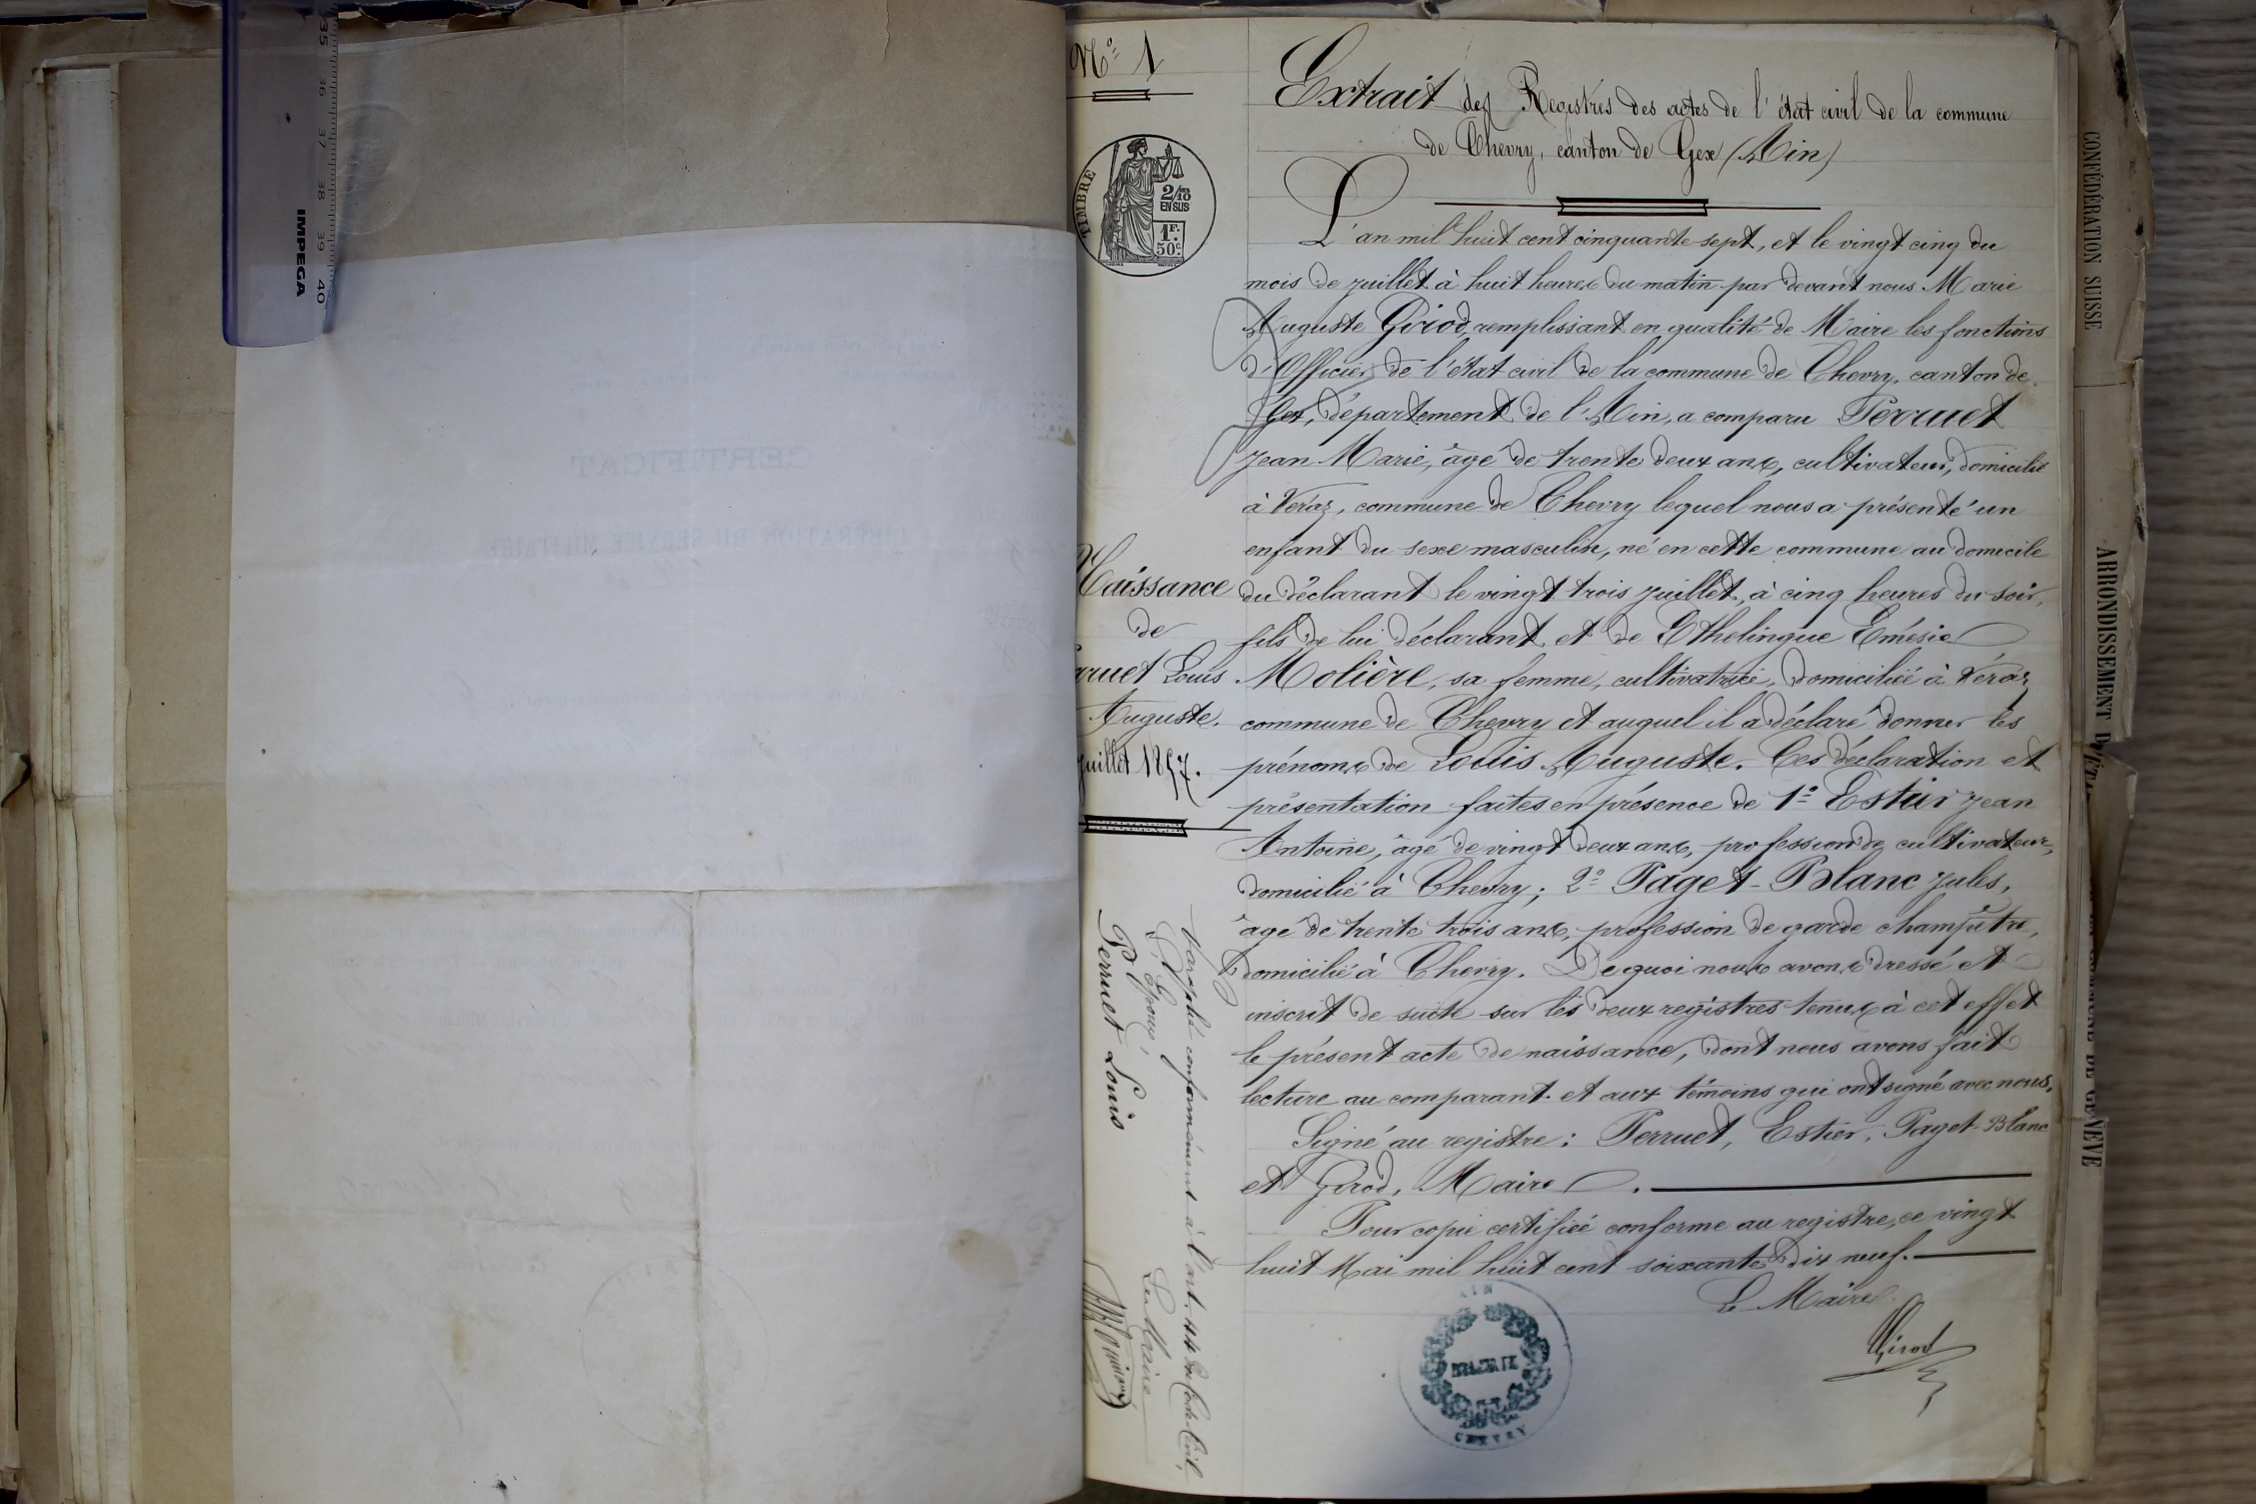 35 36 37 38 39 40
IMPEGA
CERTIFICAT
No 1
TIMBRE
2/10
EN SUS
1F.
50c.
Extrait des Registres des actes de l'état civil de la commune
de Chevry, canton de Gex (Ain)
L'an mil huit cent cinquante-sept, et le vingt cinq du
mois de juillet à huit heures du matin par devant nous Marie
Auguste Girod, remplissant en qualité de Maire les fonctions
d'Officier de l'état civil de la commune de Chevry, canton de
Gex, département de l'Ain, a comparu Perruet
Jean Marie, âgé de trente deux ans, cultivateur, domicilié
à Véraz, commune de Chevry lequel nous a présenté un
enfant du sexe masculin, né en cette commune au domicile
du déclarant le vingt trois juillet, à cinq heures du soir,
fils de lui déclarant et de Ethelingue Emésie
Molière, sa femme, cultivatrice, domiciliée à Véraz
commune de Chevry et auquel il a déclaré donner les
prénoms de Louis Auguste. Ces déclaration et
présentation faites en présence de 1o Estier Jean
Antoine, âgé de vingt deux ans, profession de cultivateur,
domicilié à Chevry; 2o Paget-Blanc Jules,
âgé de trente trois ans, profession de garde champêtre,
domicilié à Chevry. De quoi nous avons dressé et
inscrit de suite sur les deux registres tenus à cet effet
le présent acte de naissance, dont nous avons fait
lecture au comparant et aux témoins qui ont signé avec nous.
Signé au registre: Perruet, Estier, Paget-Blanc
et Girod, Maire.
Pour copie certifiée conforme au registre, ce vingt
huit Mai mil huit cent soixante dix neuf.
Le Maire
Girod
AIN
MAIRIE
DE
CHEVRY
Naissance
de
rruet Louis
Auguste.
juillet 1857.
Paraphé conformément à l'art. 44 du Code Civil,
L'Epoux, Le Maire
Perruet Louis
CONFÉDÉRATION SUISSE
ARRONDISSEMENT D'ÉT
DE GENÈVE